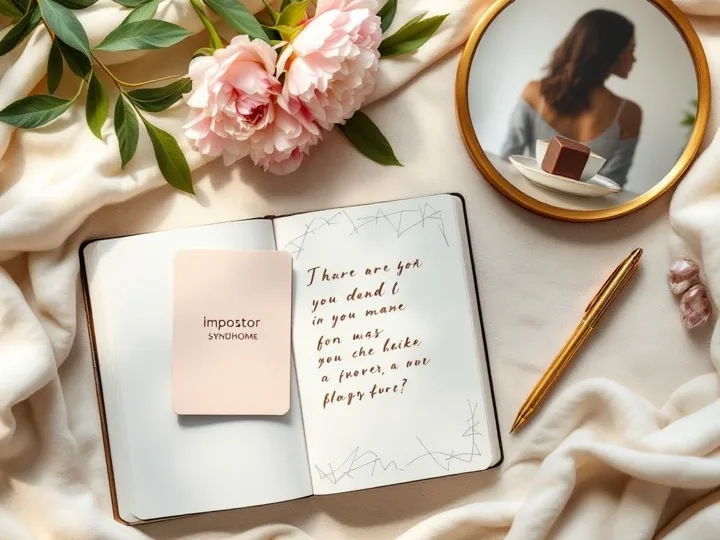 impostor
SYNDHOME
There are
you dend l
in you mane
fon was
you che heike
a frover, a not
flags furt?